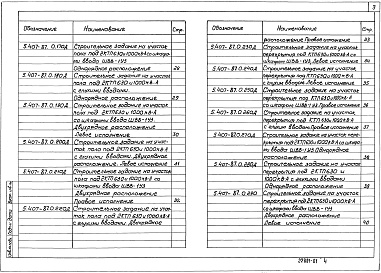 3
Обозначение Наименование Стр.
5.407-87.0.170Д Строительное задание на участок
пола под 2КТП630 и 1000 кВ·А со шкафами
ввода ШВВ-1У3
Однорядное расположение 28
5.407-87.0.180Д Строительное задание на участок
пола под 2КТП630 и 1000 кВ·А
с глухими вводами
Однорядное расположение 29
5.407-87.0.190Д Строительное задание на участок
пола под 2КТП630 и 1000 кВ·А
со шкафами ввода ШВВ-1У3
Двухрядное расположение
Левое исполнение 30
5.407-87.0.200Д Строительное задание на участок
пола под 2КТП630 и 1000 кВ·А
с глухими вводами. Двухрядное
расположение. Левое исполнение 31
5.407-87.0.210Д Строительное задание на участок
пола под 2КТП630 и 1000 кВ·А со
шкафами ввода ШВВ-1У3
Двухрядное расположение
Правое исполнение 32
5.407-87.0.220Д Строительное задание на участок
пола под 2КТП630 и 1000 кВ·А
с глухими вводами. Двухрядное
Обозначение Наименование Стр.
расположение Правое исполнение 33
5.407-87.0.230Д Строительное задание на участок
перекрытия под КТП630 и 1000 кВ·А со
шкафом ШВВ-1У3. Левое исполнение 34
5.407-87.0.240Д Строительное задание на участок
перекрытия под КТП630 и 1000 кВ·А
с глухим вводом. Левое исполнение 35
5.407-87.0.250Д Строительное задание на участок
перекрытия под КТП630 и 1000 кВ·А
со шкафом ШВВ-1У3. Правое исполнение 36
5.407-87.0.260Д Строительное задание на участок
перекрытия под КТП 630 и 1000 кВ·А
с глухим вводом. Правое исполнение 37
5.407-87.0.270Д Строительное задание на участок
перекрытия под 2КТП630 и 1000 кВ·А со шкафами
ввода ШВВ-1У3 Однорядное
расположение 38
5.407-87.0.280Д Строительное задание на участок
перекрытия под 2КТП630 и
1000 кВ·А с глухими вводами
Однорядное расположение 39
5.407-87.0.290 Строительное задание на участок
перекрытия под 2КТП630 и 1000 кВ·А
со шкафами ввода ШВВ-1У3
Двухрядное расположение
Левое исполнение 40
4